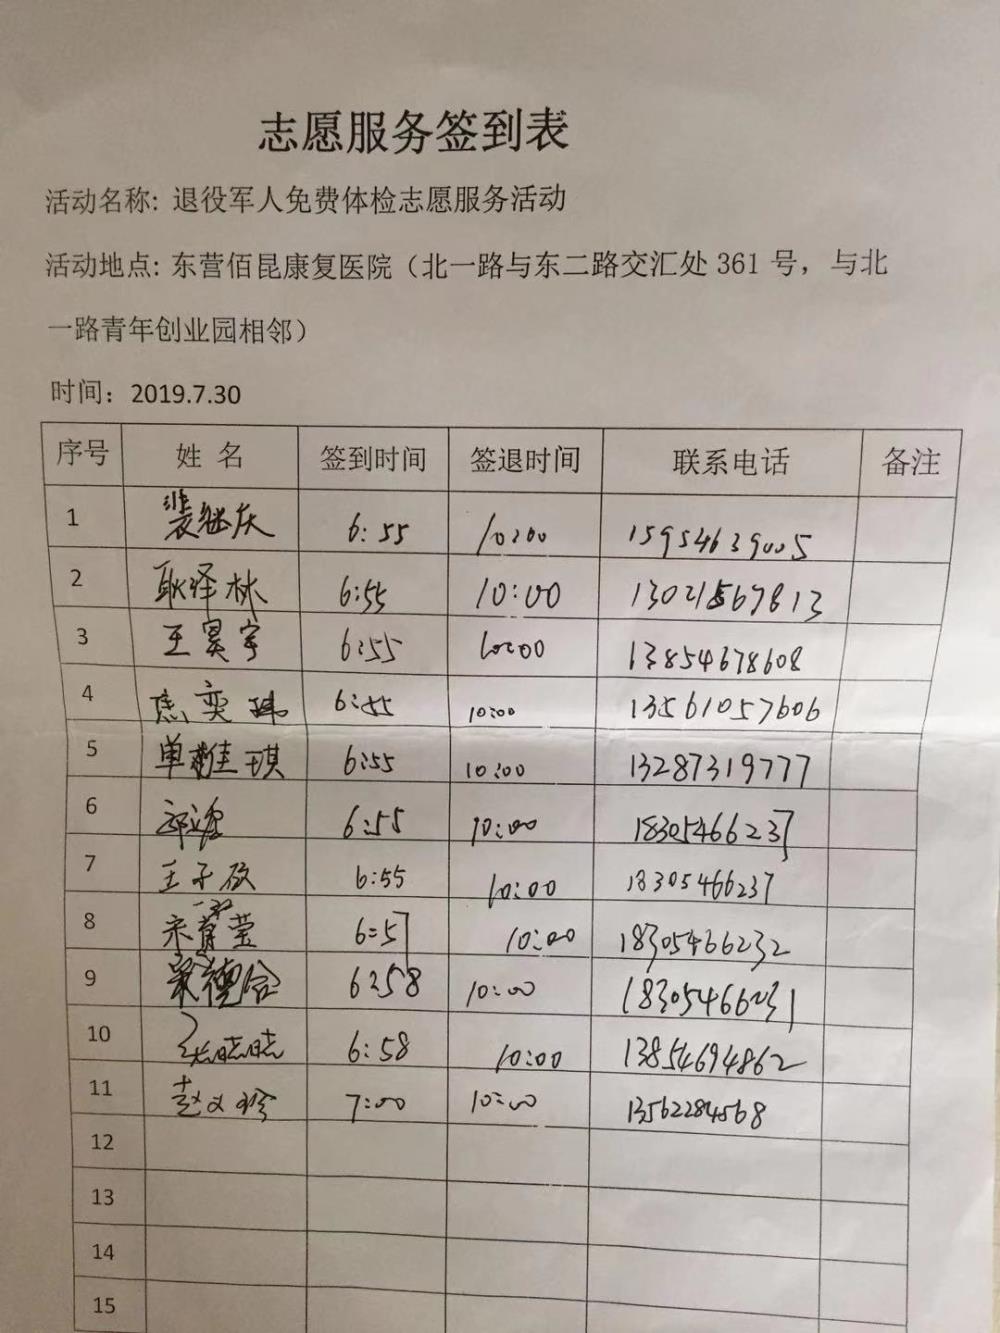 志愿服务签到表
活动名称: 退役军人免费体检志愿服务活动
活动地点: 东营佰昆康复医院（北一路与东二路交汇处 361 号，与北
一路青年创业园相邻）
时间：2019.7.30
序号 姓 名 签到时间 签退时间 联系电话 备注
1 裴继庆 6:55 10:00 15954639005
2 耿泽林 6:55 10:00 13021567813
3 王昊宇 6:55 10:00 13854678608
4 奕玮 6:55 10:00 13561057606
5 单雅琪 6:55 10:00 13287319777
6 6:55 10:00 18305466237
7 王子 6:55 10:00 18305466237
8 宋菁莹 6:57 10:00 18305466232
9 6:58 10:00 18305466231
10 6:58 10:00 13854694862
11 赵义珍 7:00 10:00 13562284568
12
13
14
15